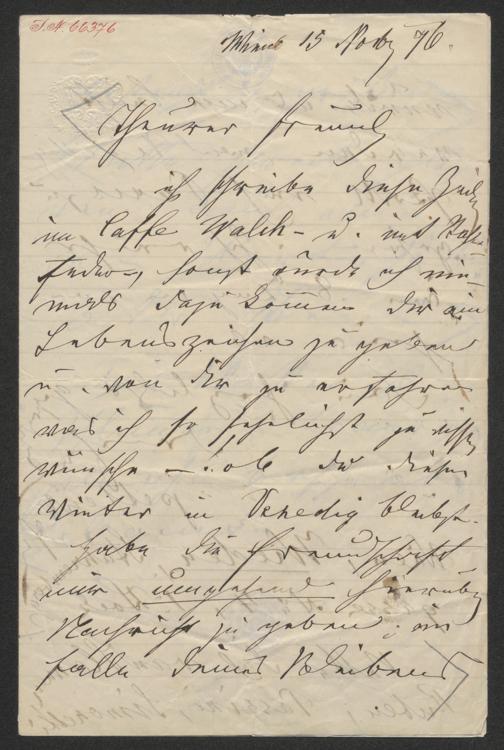 J.N. 66376
Wien 15 Nov 76.
Theurer Freund
ich schreibe diese Zeilen
im Caffe Walch – u. mit
feder –, sonst würde ich nie-
mals dazu kommen dir ein
Lebenszeichen zu geben
u. von dir zu erfahren
was ich so sehnlichst zu wissen
wünsche – : ob du diesen
Winter in Venedig bleibst.
habe die Freundschaft
mir umgehend hierüber
Nachricht zu geben; im
falle deines Bleibens